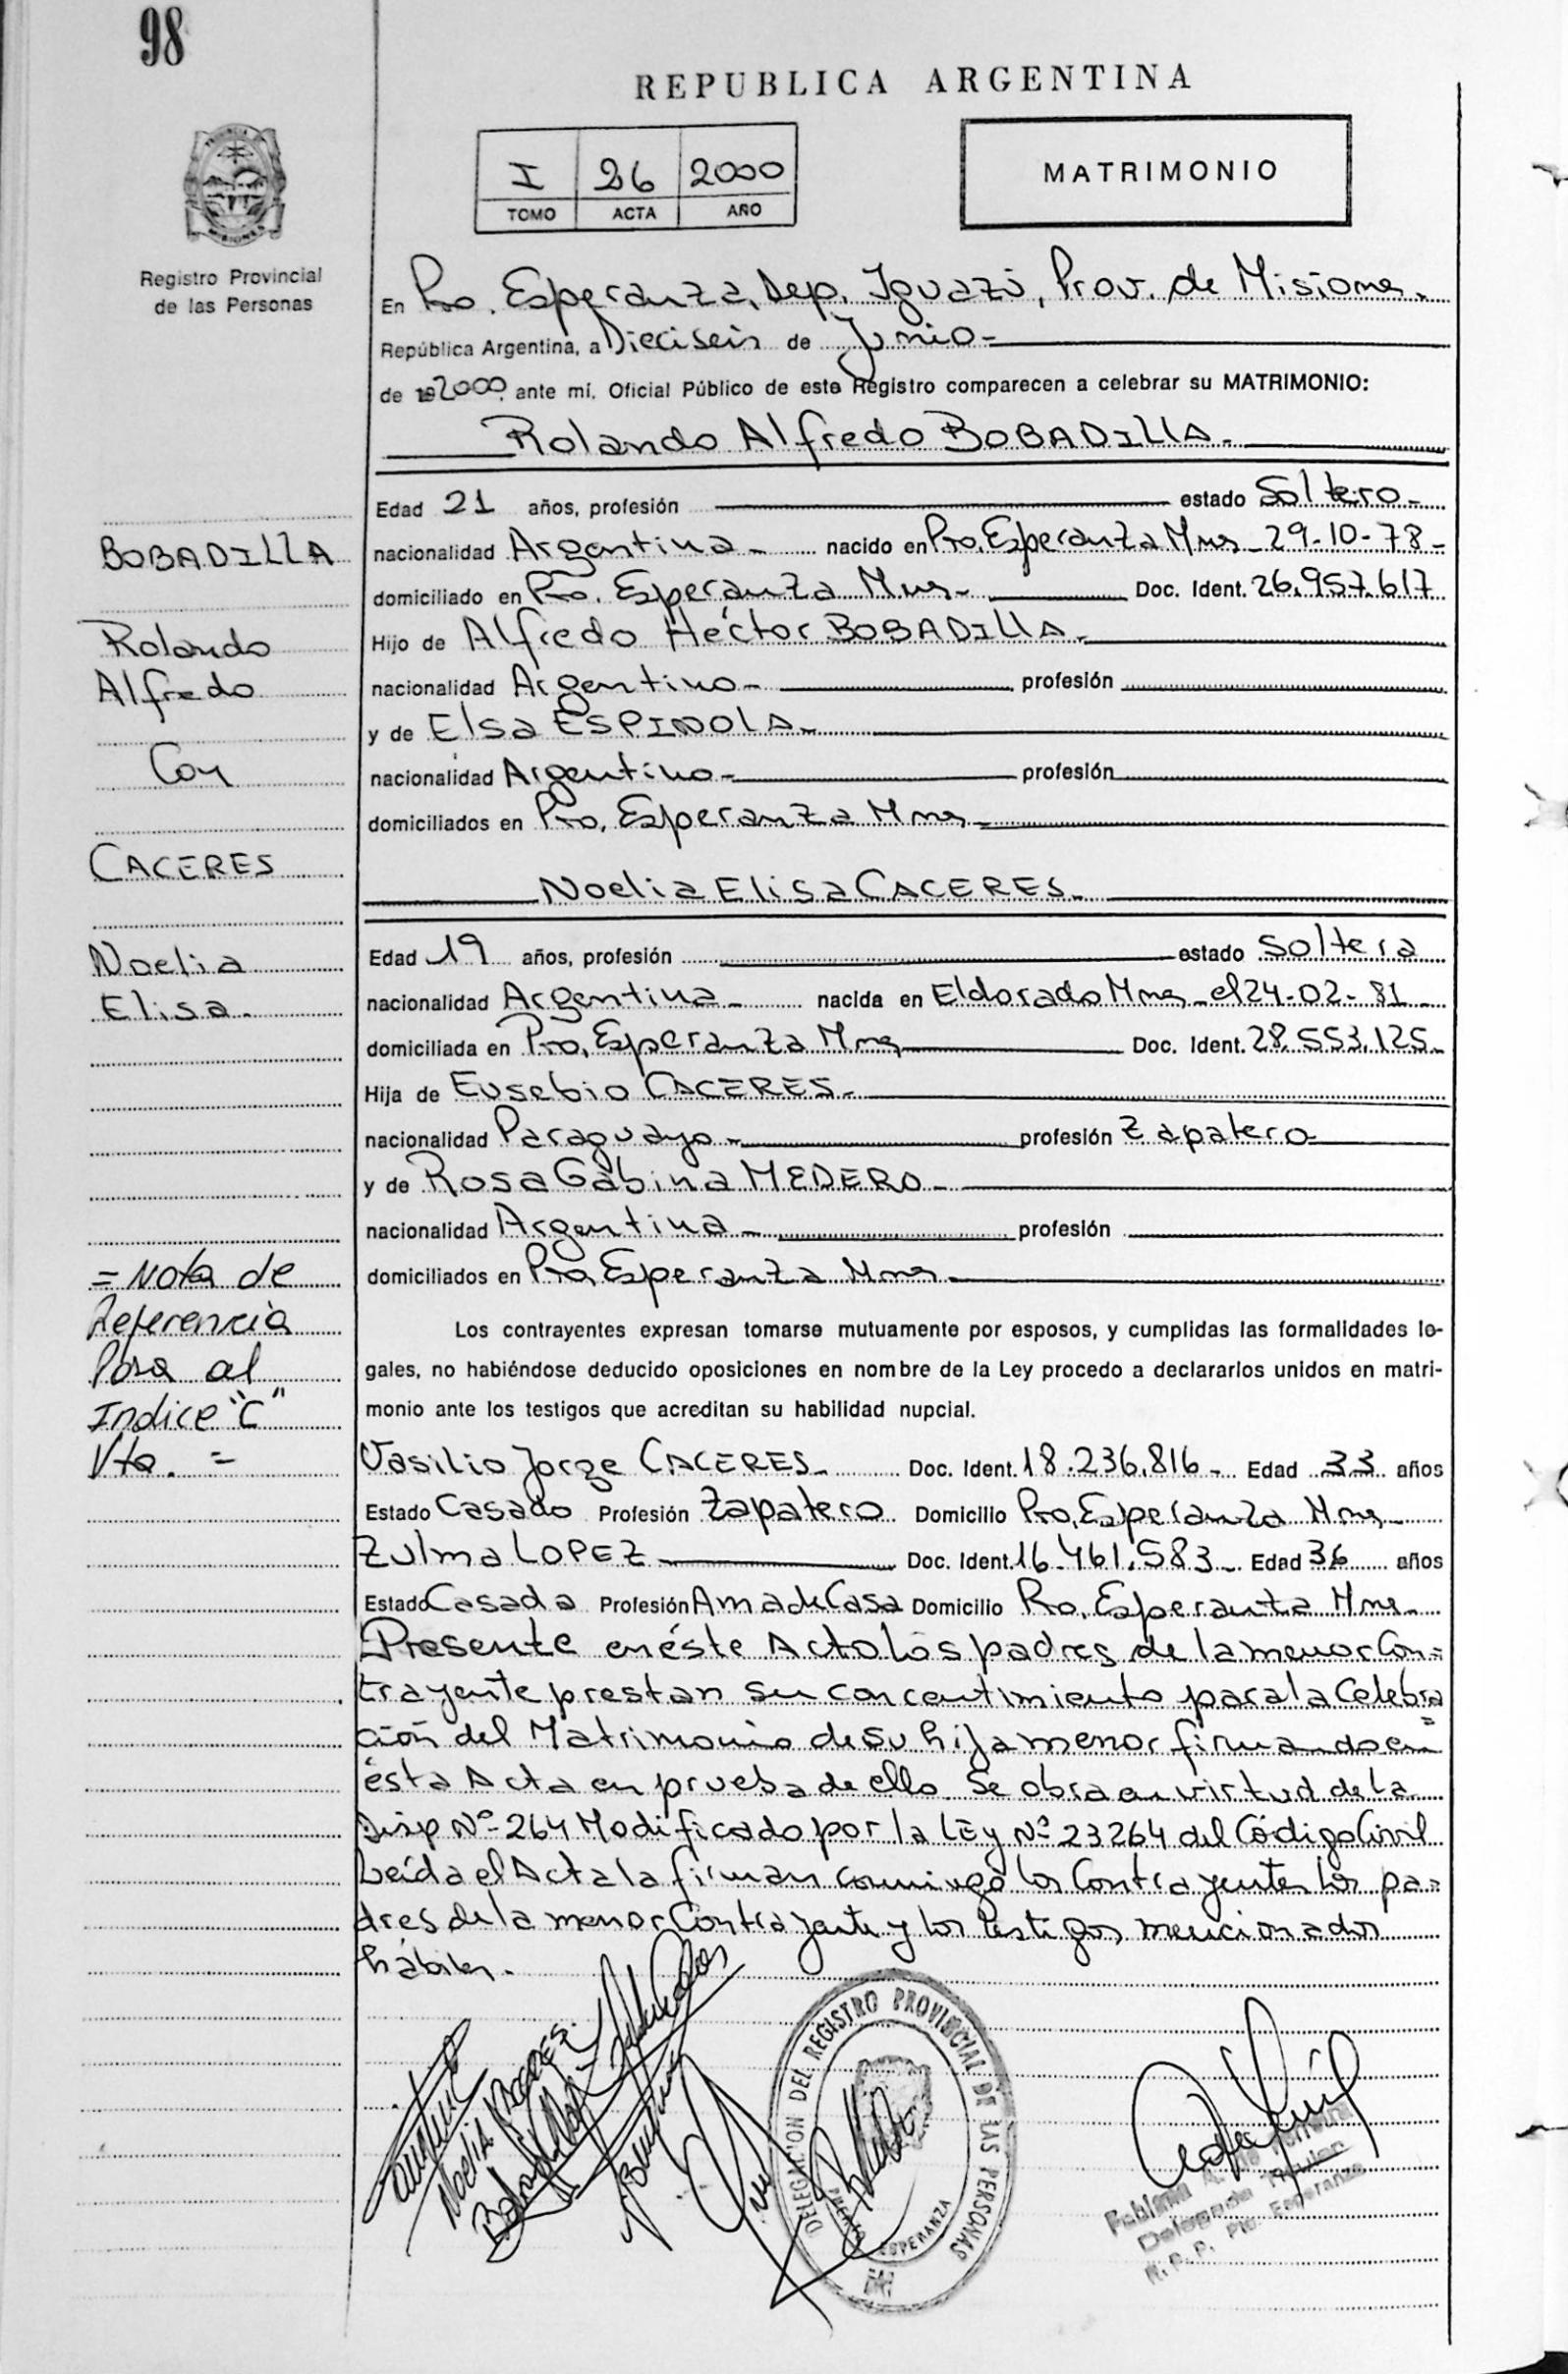 98
REPUBLICA ARGENTINA
PROVINCIA DE
MISIONES
Registro Provincial
de las Personas
I 26 2000
TOMO ACTA AÑO
MATRIMONIO
En Pto. Esperanza, Dep. Iguazú, Prov. de Misiones.
República Argentina, a Dieciseis de Junio-
de 192000 ante mí, Oficial Público de este Registro comparecen a celebrar su MATRIMONIO:
Rolando Alfredo BOBADILLA-
Edad 21 años, profesión estado Soltero-
nacionalidad Argentina- nacido en Pto. Esperanza Mnes- 29-10-78-
domiciliado en Pto. Esperanza Mnes- Doc. Ident. 26.957.617
Hijo de Alfredo Héctor BOBADILLA-
nacionalidad Argentino- profesión
y de Elsa ESPINOLA-
nacionalidad Argentino- profesión
domiciliados en Pto. Esperanza Mnes-
Noelia Elisa CACERES-
Edad 19 años, profesión estado Soltera
nacionalidad Argentina- nacida en Eldorado Mnes- el 24-02-81-
domiciliada en Pto. Esperanza Mnes Doc. Ident. 28.553.125-
Hija de Eusebio CACERES-
nacionalidad Paraguayo- profesión Zapatero
y de Rosa Gabina MEDERO-
nacionalidad Argentina- profesión
domiciliados en Pto. Esperanza Mnes-
Los contrayentes expresan tomarse mutuamente por esposos, y cumplidas las formalidades le-
gales, no habiéndose deducido oposiciones en nombre de la Ley procedo a declararlos unidos en matri-
monio ante los testigos que acreditan su habilidad nupcial.
Vasilio Jorge CACERES- Doc. Ident. 18.236.816- Edad 33 años
Estado Casado Profesión Zapatero Domicilio Pto. Esperanza Mnes-
Zulma LOPEZ Doc. Ident. 16.461.583- Edad 36 años
Estado Casada Profesión Ama de Casa Domicilio Pto. Esperanza Mnes-
Presente en éste Acto los padres de la menor Con=
trayente prestan su concentimiento para la Celebra
=
ción del Matrimonio de su hija menor firmando en
ésta Acta en prueba de ello. Se obra en virtud de la
Disp Nº 264 Modificado por la LEy Nº 23264 del Código Civil
Leída el Acta la firman conmigo los Contrayentes los pa=
dres de la menor Contrayente y los testigos mencionados
hábiles.
BOBADILLA
Rolando
Alfredo
Con
CACERES
Noelia
Elisa.
= Nota de
Referencia
Pasa al
Indice "C"
Vto. =
Noelia CACERES.
DELEGACION DEL REGISTRO PROVINCIAL DE LAS PERSONAS
PUERTO ESPERANZA
Delegada Titular
R. P. P. Pto. Esperanza